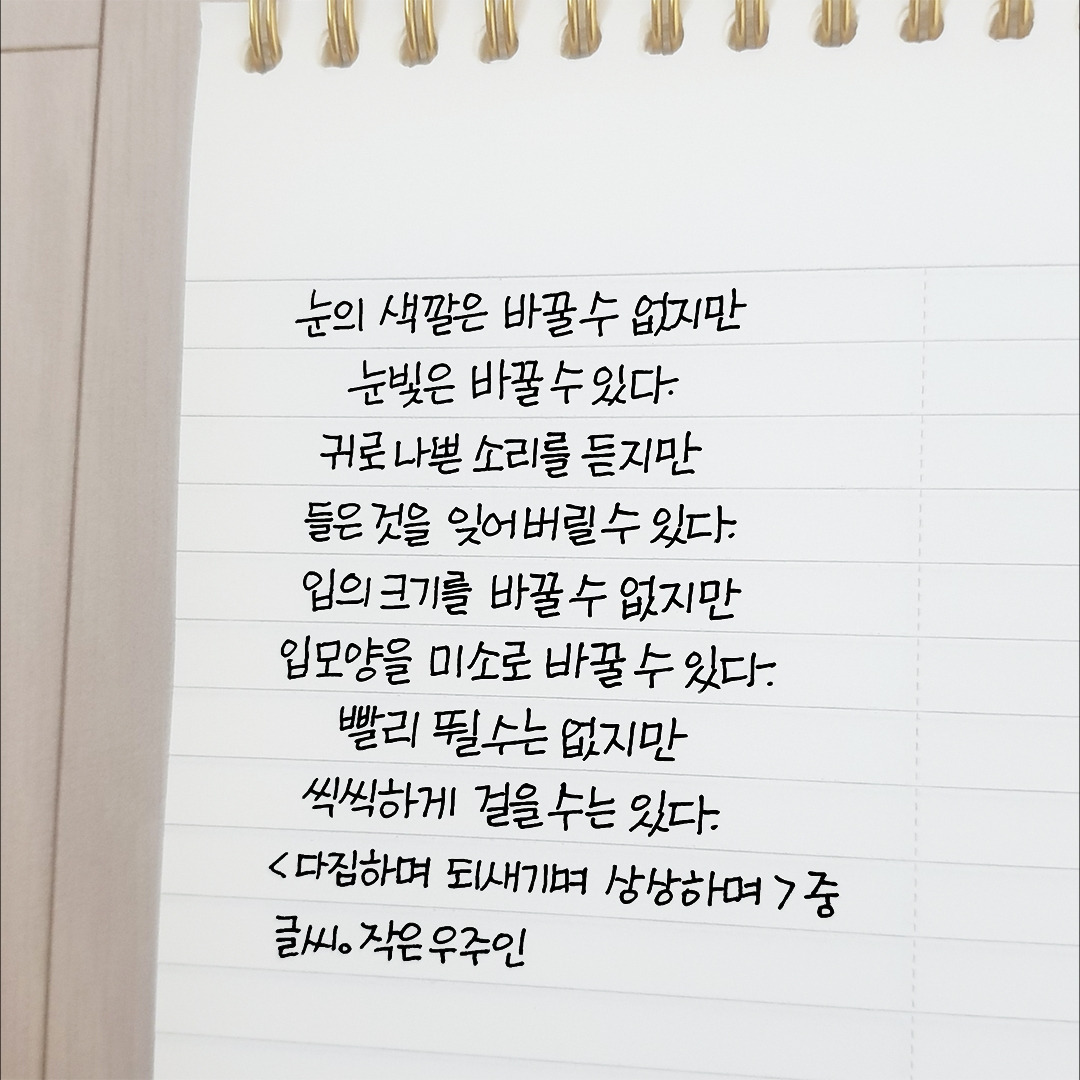 눈의 색깔은 바꿀 수 없지만
눈빛은 바꿀 수 있다.
귀로 나쁜 소리를 듣지만
들은 것을 잊어버릴 수 있다.
입의 크기를 바꿀 수 없지만
입모양을 미소로 바꿀 수 있다.
빨리 뛸 수는 없지만
씩씩하게 걸을 수는 있다.
<다짐하며 되새기며 상상하며> 중
글씨。작은우주인